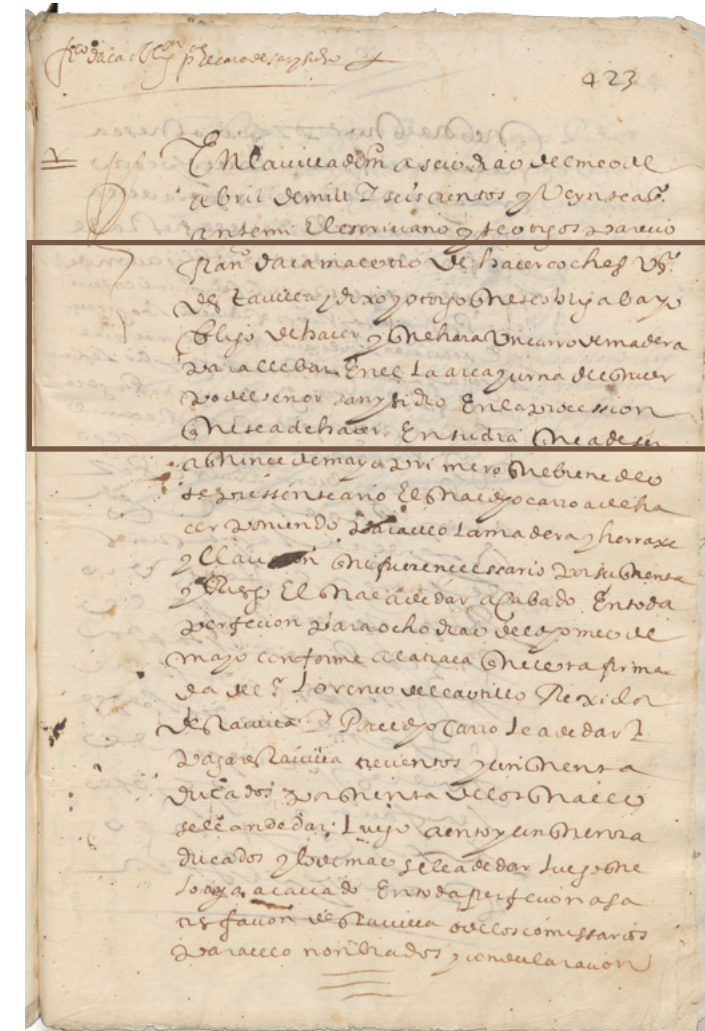 423
En la villa de m a seis dias del mes de
abril de mill y seis cientos y Veynte a.
ante mi El escrivano y testigos parecio
fran.co daca maestro de hacer coches v.o
desta villa y dixo y otorgo que se obligaba y o
bligo de hacer y que hara Un carro de madera
para llebar En el La arca y urna del cuer
po del señor san ysidro En la procession
que se a de hacer En su dia que a de ser
a quince de mayo primero que biene deste
presente año El qual dicho carro a de ha
cer poniendo para ello La madera y herraxe
y que fuere necessario por su quenta
y Riesgo El qual a de dar acabado En toda
perfecion para ocho dias del dicho mes de
mayo conforme a la traca que esta firma
da de Lorenco del castillo Rexidor
desta villa y Por el dicho carro Se a de dar y
pagar esta villa ducientos y cinquenta
ducados por quenta de los quales
se le an de dar Luego ciento y cinquenta
ducados y lo demas se le a de dar luego que
lo aya acavado En toda perfecion a sa
tisfacion desta villa o de los comissarios
para ello nonbrados y con declaracion